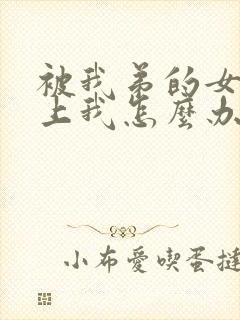 被我弟的女
上我怎麼办
小布愛喫蛋撻